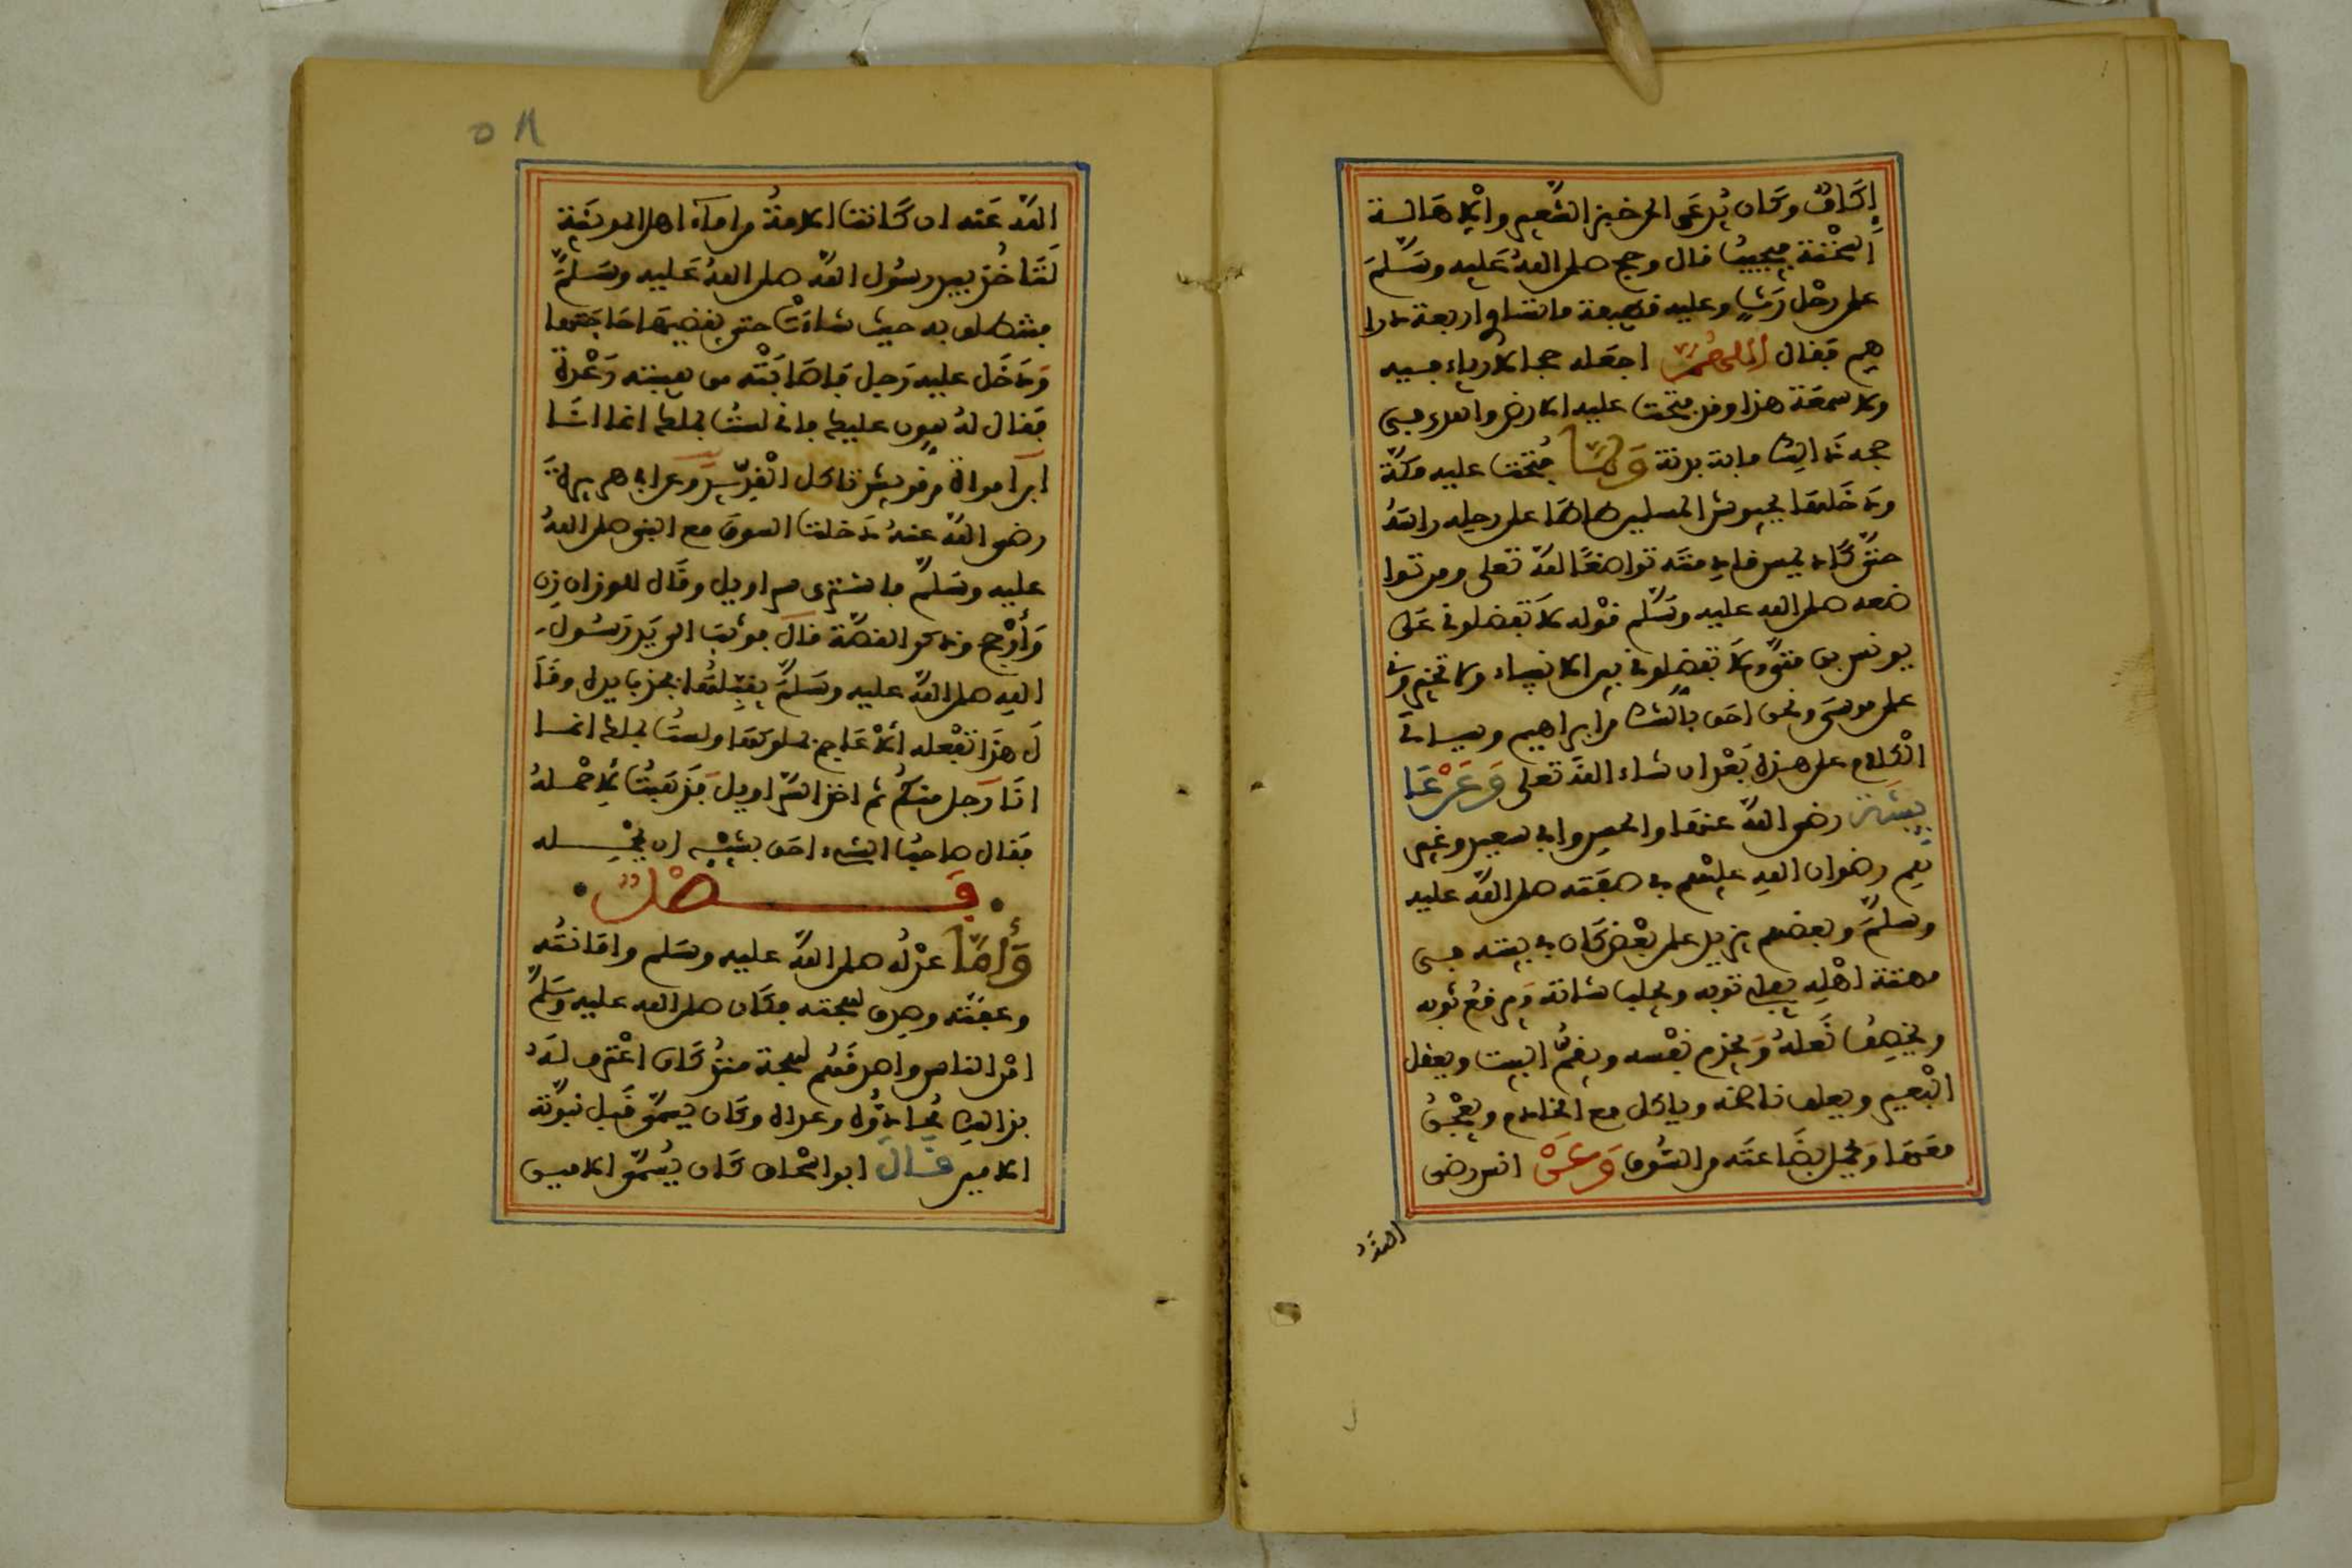 إكاف وكان يدعى الى خبز الشعير والاهالة
السنخة فيجيب قال وحج صلى الله عليه وسلم
على رحل رث وعليه قطيعة ما تساوي اربعة درا
هم فقال اللهم اجعله حجا لا رياء فيه
ولا سمعة هذا وقد فتحت عليه الارض واهدى في
حجه ذالك ماية بدنة ولما فتحت عليه مكة
ودخلها بجيوش المسلمين طاطا على رحله راسه
حتى كاد يمس قادمته تواضعا لله تعلى ومن توا
ضعه صلى الله عليه وسلم قوله لا تفضلوني على
يونس بن متى ولا تفضلوني بين الانبياء ولا تخيروني
على موسى ونحن احق بالشك من ابراهيم وسياتي
الكلام على هذه بعد ان شاء الله تعلى وعن عا
يشة رضي الله عنها والحسن وابي سعيد وغير
هم رضوان الله عليهم في صفته صلى الله عليه
وسلم وبعضهم يزيد على بعض كان في بيته في
مهنة اهله يفلي ثوبه ويحلب شاته ويرفع ثوبه
ويخصف نعله ويخدم نفسه ويقم البيت ويعقل
البعير ويعلف ناضحه وياكل مع الخادم ويعجن
معها ويحمل بضاعته من السوق وعن انس رضي
الله
٥٨
الله عنه ان كانت الامة من اماء اهل المدينة
لتاخذ بيد رسول الله صلى الله عليه وسلم
فتنطلق به حيث شاءت حتى يقضي حاجتها
ودخل عليه رجل فاصابته من هيبته رعدة
فقال له هون عليك فاني لست بملك انما انا
ابن امراة من قريش تاكل القديد وعن ابي هريرة
رضي الله عنه دخلت السوق مع النبي صلى الله
عليه وسلم فاشترى سراويل وقال للوزان زن
وأرجح وذكر القصة قال فوثب الى يد رسول
الله صلى الله عليه وسلم يقبلها فجذب يده وقا
ل هذا تفعله الاعاجم بملوكها ولست بملك انما
انا رجل منكم ثم اخذ السراويل فذهبت لاحمله
فقال صاحب الشيء احق بشيئه ان يحمله
فصل
وأما عدله صلى الله عليه وسلم وامانته
وعفته وصدق لهجته فكان صلى الله عليه وسلم
امن الناس واصدقهم لهجة منذ كان اعترف له
بذالك محادوه وعداه وكان يسمى قبل نبوته
الامين قال ابن اسحاق كان يسمى الامين